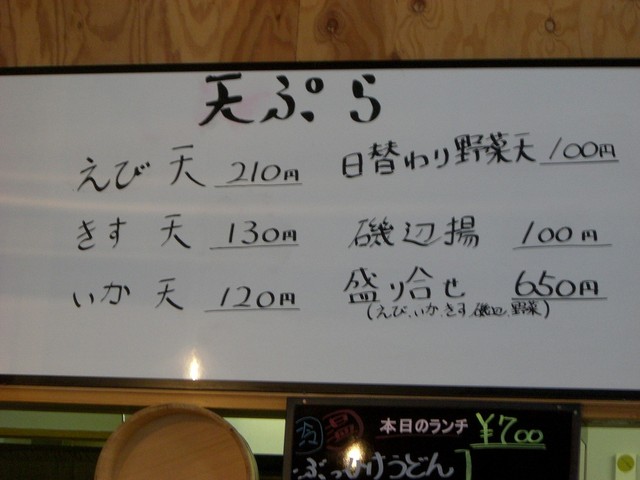 天ぷら
えび天 210円
日替わり野菜天 100円
きす天 130円
磯辺揚 100円
いか天 120円
盛り合せ 650円
(えび、いか、きす、磯辺、野菜)
冷 温 本日のランチ ¥700
ぶっかけうどん